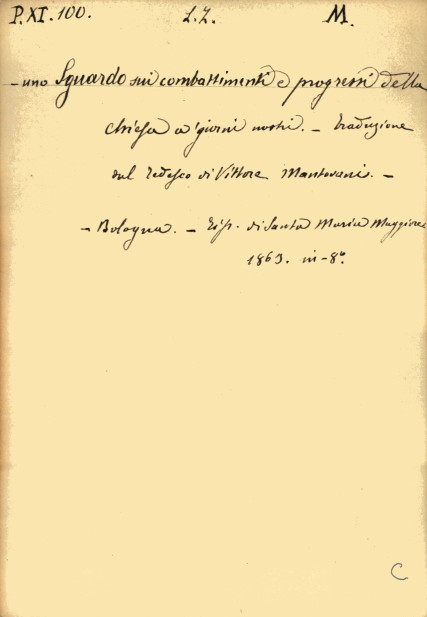 P.XI.100. L.Z. M.
- uno Sguardo sui combattimenti e progressi della
chiesa a' giorni nostri. - traduzione
dal Tedesco di Vittore Mantovani. -
- Bologna. - Tip. di Santa Maria Maggiore
1863. in-8º.
C